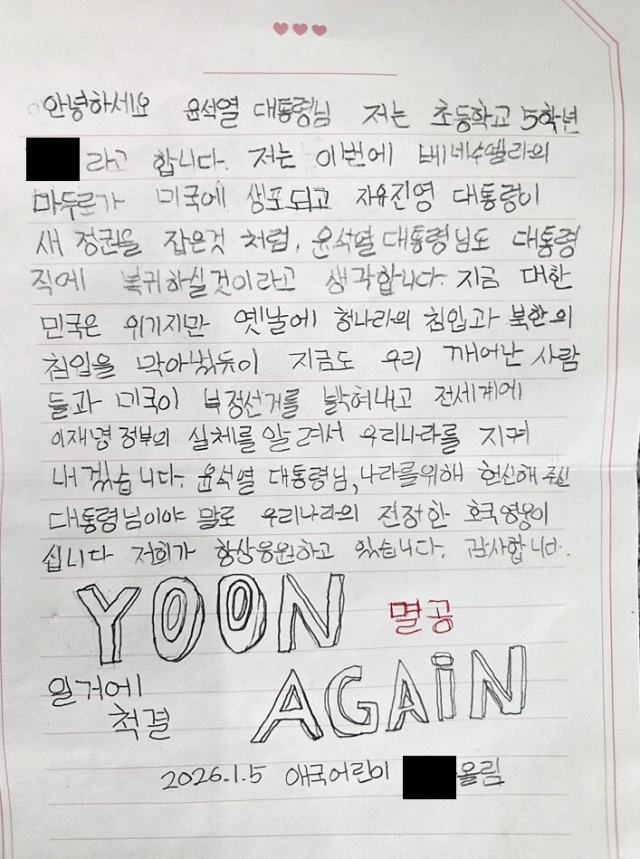 안녕하세요 윤석열 대통령님 저는 초등학교 5학년
라고 합니다. 저는 이번에 베네수엘라의
마두로가 미국에 생포되고 자유진영 대통령이
새 정권을 잡은것 처럼, 윤석열대통령님도 대통령
직에 복귀하실것이라고 생각합니다. 지금 대한
민국은 위기지만 옛날에 청나라의 침입과 북한의
침입을 막아냈듯이 지금도 우리 깨어난 사람
들과 미국이 부정선거를 밝혀내고 전세계에
이재명 정부의 실체를 알려서 우리나라를 지켜
내겠습니다. 윤석열 대통령님, 나라를위해 헌신해 주신
대통령님이야 말로 우리나라의 진정한 호국영웅이
십니다 저희가 항상응원하고 있습니다. 감사합니다.
YOON 멸공
일거에
척결 AGAiN
2026.1.5 애국어린이 올림